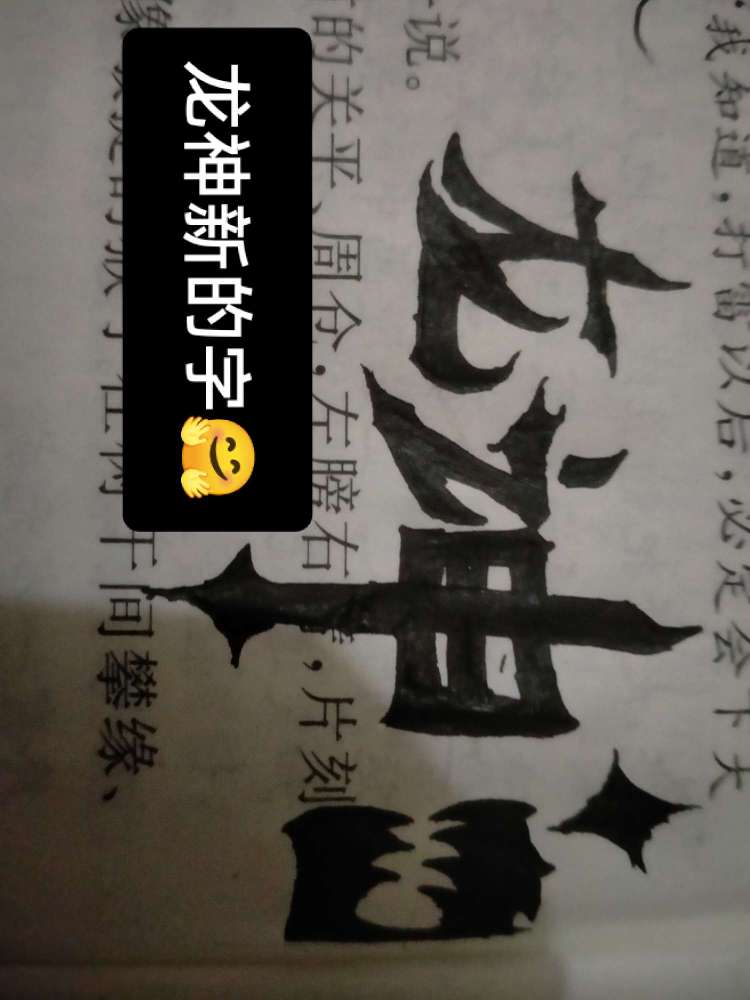 “我知道，打雷以后，必定会下大
说。
龙神
的关平、周仓，左膀右臂，片刻
龙神新的字🤗
间攀缘、